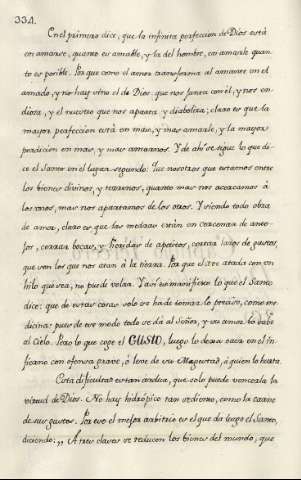 334.
En el primero dice, que la infinita perfeccion de Dios está
en amarse, quanto es amable, y la del hombre, en amarle quan-
to es posible. Porque como el amor transforma al amante en el
amado, y no hay otro el de Dios que nos junta con el, y nos en-
diosa, y el nuestro que nos aparta y diaboliza; claro es que la
mayor perfeccion está en mas, y mas amarle, y la mayor
perdicion en mas, y mas amarnos. Y de ahi se sigue lo que di-
ce el Santo en el lugar segundo: Que nosotros que estamos entre
los bienes divinos, y terrenos, quanto mas nos acercamos á
los unos, mas nos apartamos de los otros. Y siendo toda obra
de amor, claro es que los medios están en cercenar de anto-
jos, cerrar bocas, y
de apetitos, cortar lazos de gustos
que son los que nos atan á la tierra. Porque si ave atada con un
hilo que sea, no puede volar. Tan es manifiesto lo que el Santo
dice: que de estas cosas solo se ha de tomar lo preciso, como me-
dicina: pues de ese modo todo se dá al Señor, y su amor lo sube
al Cielo. Pero lo que coge el GUSTO, luego lo dexa caer en el in-
fierno con ofensa grave, ó leve de su Magestad, á quien lo hurta.
Esta dificultad es tan ardua, que solo puede vencerla la
virtud de Dios. No hay hidrópico tan sediento, como la carne
de sus gustos. Por eso el mejor arbitrio es el que da luego el Santo,
diciendo: ,, A tres clases se reducen los bienes del mundo, que